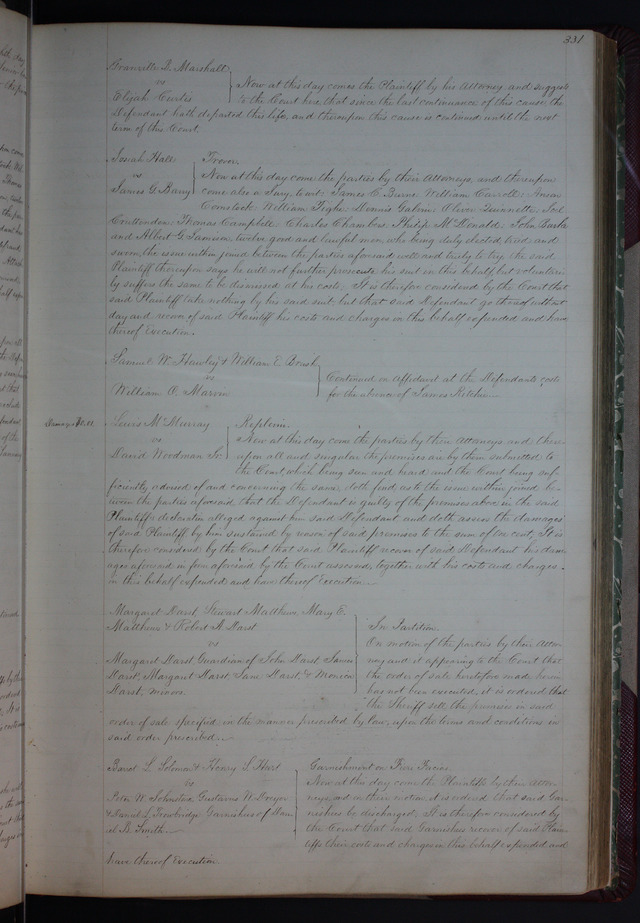 331
Granville D. Marshall
vs
Elijah Curtis
Now at this day comes the Plaintiff by his Attorney and suggests
to the Court here, that since the last continuance of this cause the
Defendant hath departed this life, and thereupon this cause is continued until the next
term of this Court.
Josiah Hall
vs
James G. Barry
Trover.
Now at this day come the parties by their Attorneys, and thereupon
come also a Jury, to wit: James C. Burns William Carroll
Comstock William Tighe Dennis Galvin Oliver Quinnette, Joel
Thomas Campbell Charles Chambers, Philip McDonald, John
and Albert G. twelve good and lawful men, who being duly elected, tried and
sworn, the issue within joined between the parties aforesaid well and truly to try, the said
Plaintiff thereupon says he will not further prosecute his suit in this behalf but voluntari-
ly suffers the same to be dismissed at his costs. It is therefore considered by the Court that
said Plaintiff take nothing by his said suit, but that said Defendant go thereof without
day and recover of said Plaintiff his costs and charges in this behalf expended and have
thereof Execution.
Samuel W. Hawley & William E.
vs
William O. Marvin
Continued on Affidavit at the Defendants costs
for the absence of James Ritchie
Lewis McMurray
vs
David Woodman Sr.
Replevin.
Now at this day come the parties by their Attorneys, and there-
upon all and singular the premises are by them submitted to
the Court, which being seen and heard and the Court being suf-
ficiently advised of and concerning the same, doth find, as to the issue within joined be-
tween the parties aforesaid, that the Defendant is guilty of the premises above in the said
Plaintiff's declaration alleged against him said Defendant, and doth assess the damages
of said Plaintiff by him sustained by reason of said premises to the sum of one cent, It is
therefore considered by the Court that said Plaintiff recover of said Defendant his dam-
ages aforesaid in form aforesaid by the Court assessed, together with his costs and charges
in this behalf expended and have thereof Execution.
Margaret Darst, Stewart Matthews, Mary E.
Matthews & Robert A. Darst
vs
Margaret Darst Guardian of John Darst, James
Darst, Margaret Darst, Jane Darst, &
Darst, minors.
In Partition.
On motion of the parties by their Attor-
neys and it appearing to the Court that
the order of sale heretofore made herein
has not been executed, it is ordered that
the Sheriff sell the premises in said
order of sale specified, in the manner prescribed by law, upon the terms and conditions in
said order prescribed.
L. Solomon & Henry S. Hart
vs
Peter W. Johnston, Gustavus W. Dreyer
& Daniel L. Trowbridge Garnishees of Sam-
uel B. Smith.
Garnishment on Fieri Facias.
Now at this day come the Plaintiffs by their Attor-
neys, and on their motion it is ordered that said Gar-
nishees be discharged. It is therefore considered by
the Court that said Garnishees recover of said Plain-
tiffs their costs and charges in this behalf expended and
have thereof Execution.